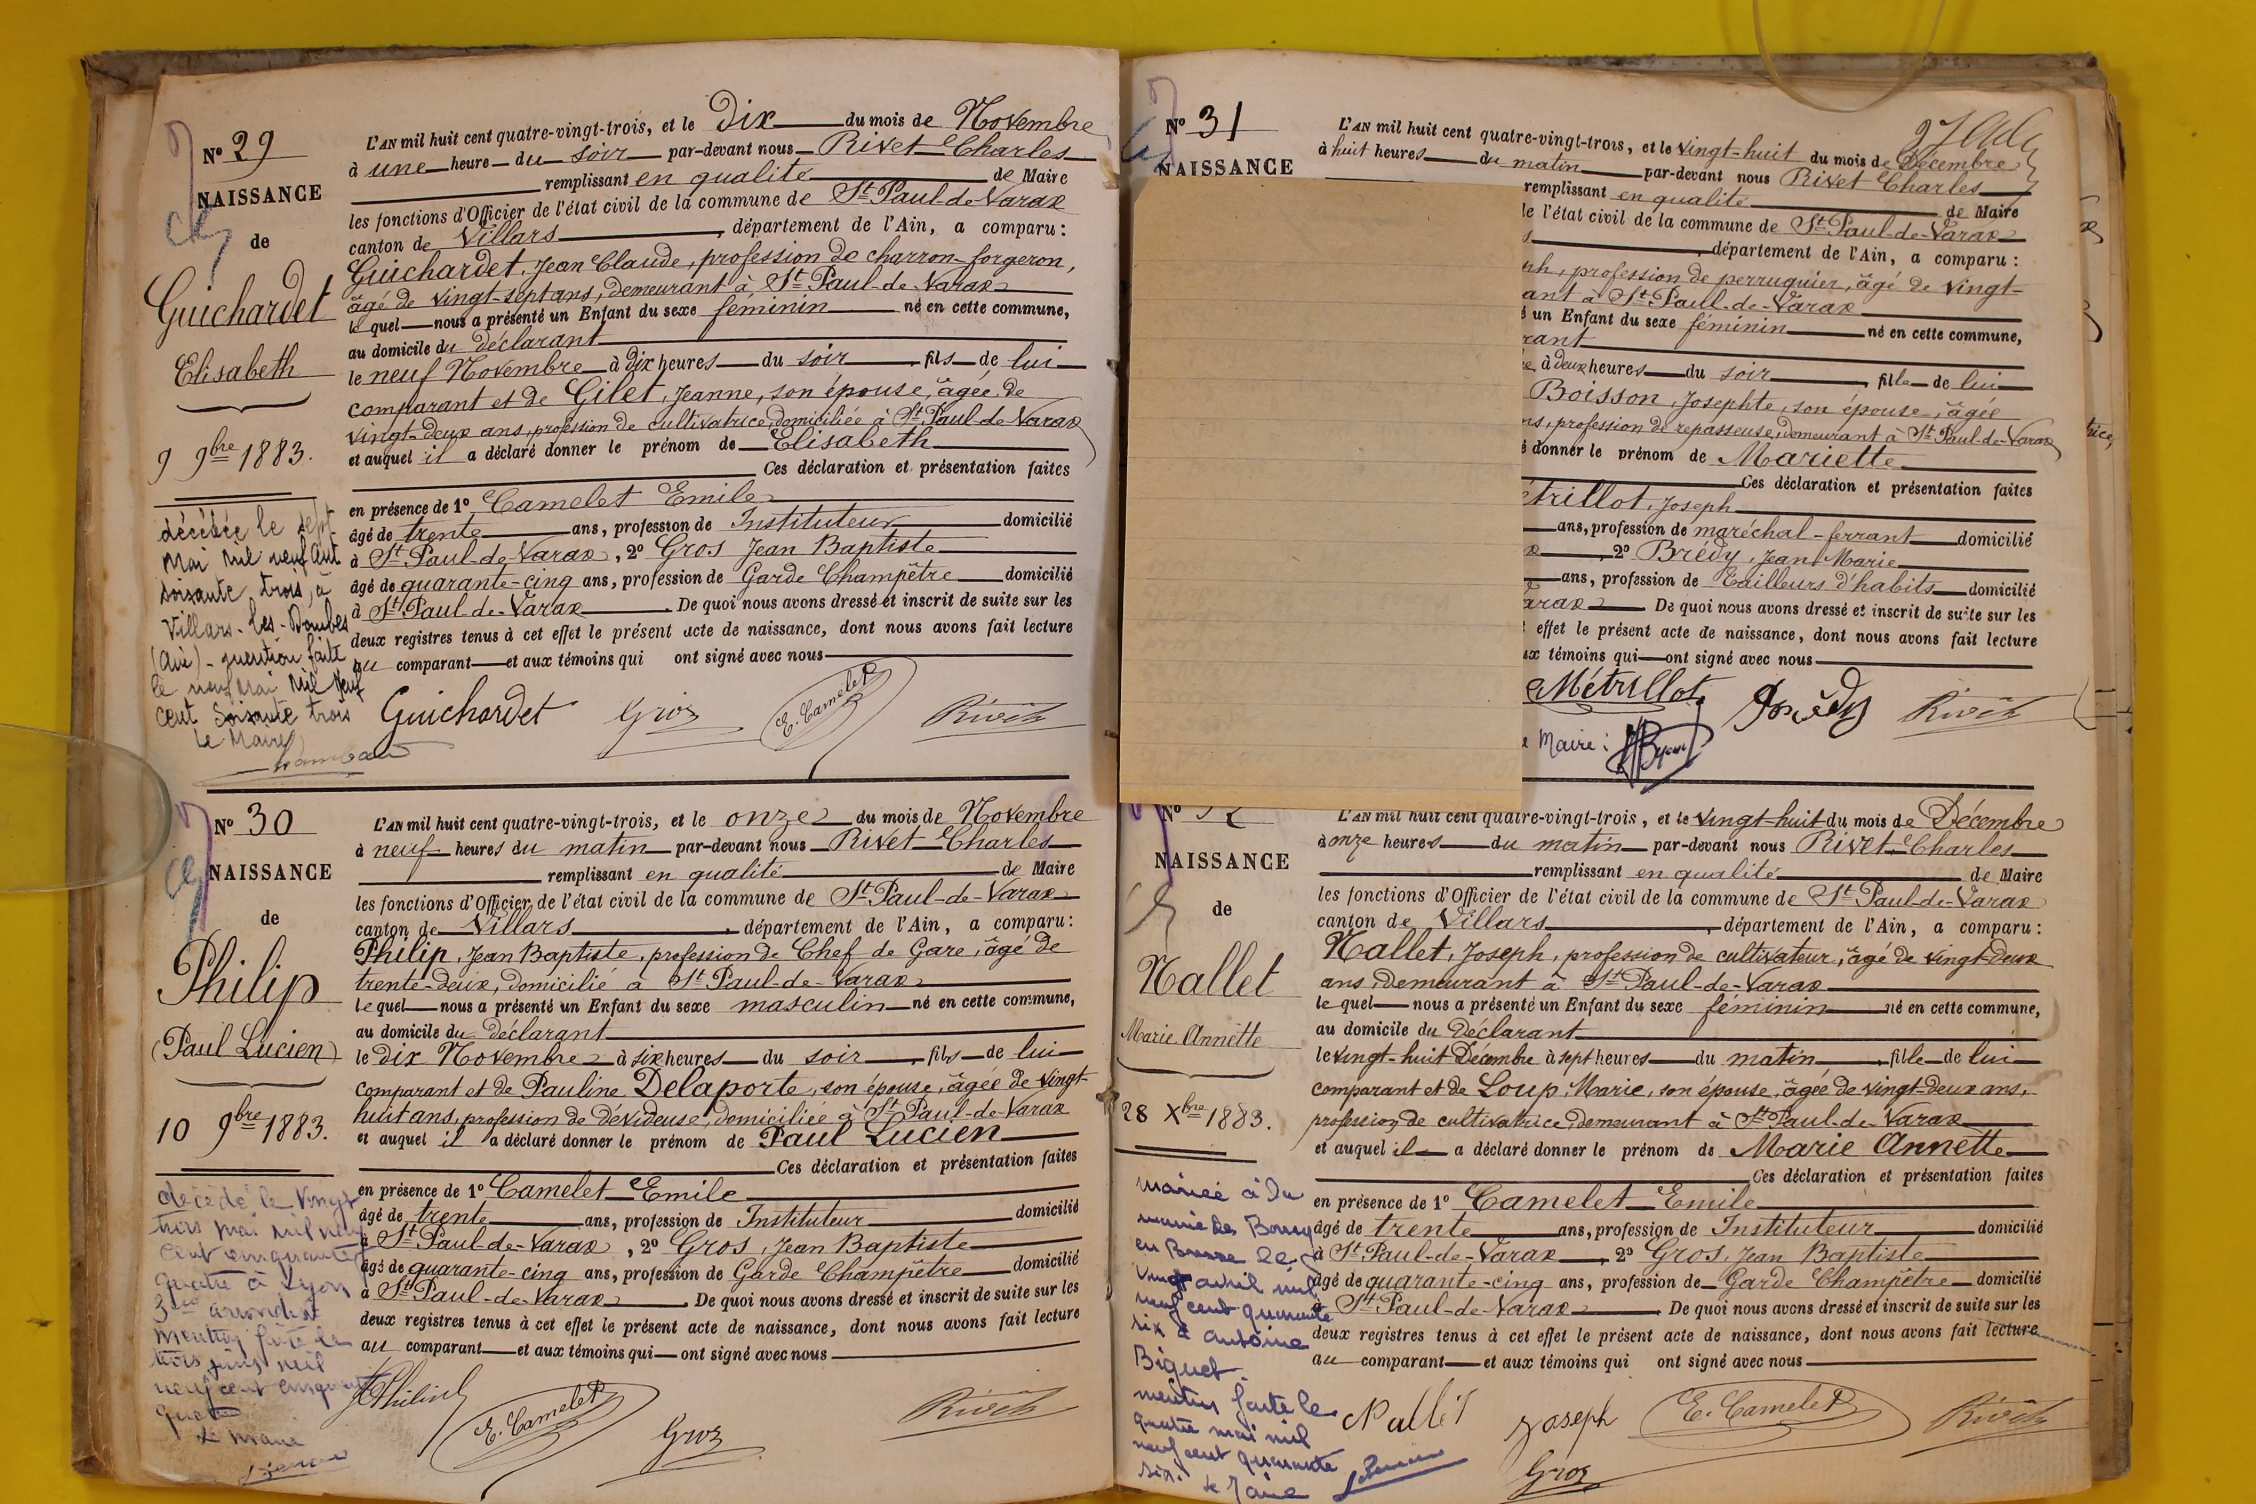 N° 29
NAISSANCE
de
Guichardet
Elisabeth
9 9bre 1883.
décédée le sept
mai mil neuf cent
soixante trois, à
Villars-les-Dombes
(Ain) - mention faite
le neuf mai mil neuf
cent soixante trois
Le Maire
L'AN mil huit cent quatre-vingt-trois, et le Dix du mois de Novembre
à une heure du soir par-devant nous Rivet Charles
remplissant en qualité de Maire
les fonctions d'Officier de l'état civil de la commune de St Paul-de-Varax
canton de Villars, département de l'Ain, a comparu :
Guichardet, Jean Claude, profession de charron-forgeron,
âgé de vingt-sept ans, demeurant à St Paul-de-Varax
le quel nous a présenté un Enfant du sexe féminin né en cette commune,
au domicile du déclarant
le neuf Novembre à dix heures du soir, fils de lui
comparant et de Gilet, Jeanne, son épouse, âgée de
vingt-deux ans, profession de cultivatrice, domiciliée à St Paul-de-Varax
et auquel il a déclaré donner le prénom de Elisabeth
Ces déclaration et présentation faites
en présence de 1° Camelet Emile
âgé de trente ans, profession de Instituteur domicilié
à St Paul-de-Varax, 2° Gros Jean Baptiste
âgé de quarante-cinq ans, profession de Garde Champêtre domicilié
à St Paul-de-Varax. De quoi nous avons dressé et inscrit de suite sur les
deux registres tenus à cet effet le présent acte de naissance, dont nous avons fait lecture
au comparant et aux témoins qui ont signé avec nous
Guichardet Gros E. Camelet Rivet
N° 30
NAISSANCE
de
Philip
(Paul Lucien)
10 9bre 1883.
décédé le vingt
trois mai mil neuf
cent cinquante
quatre à Lyon
3me arrondist
mention faite le
trois juin mil
neuf cent cinquante
quatre
Le Maire
L'AN mil huit cent quatre-vingt-trois, et le onze du mois de Novembre
à neuf heures du matin par-devant nous Rivet Charles
remplissant en qualité de Maire
les fonctions d'Officier de l'état civil de la commune de St Paul-de-Varax
canton de Villars, département de l'Ain, a comparu :
Philip, Jean Baptiste, profession de Chef de Gare, âgé de
trente-deux, domicilié à St Paul-de-Varax
le quel nous a présenté un Enfant du sexe masculin né en cette commune,
au domicile du déclarant
le dix Novembre à six heures du soir, fils de lui
comparant et de Pauline Delaporte, son épouse, âgée de vingt-
huit ans, profession de dévideuse, domiciliée à St Paul-de-Varax
et auquel il a déclaré donner le prénom de Paul Lucien
Ces déclaration et présentation faites
en présence de 1° Camelet Emile
âgé de trente ans, profession de Instituteur domicilié
à St Paul-de-Varax, 2° Gros, Jean Baptiste
âgé de quarante-cinq ans, profession de Garde Champêtre domicilié
à St Paul-de-Varax. De quoi nous avons dressé et inscrit de suite sur les
deux registres tenus à cet effet le présent acte de naissance, dont nous avons fait lecture
au comparant et aux témoins qui ont signé avec nous
Philip E. Camelet Gros Rivet
N° 31
NAISSANCE
L'AN mil huit cent quatre-vingt-trois, et le vingt-huit du mois de Décembre
à huit heures du matin par-devant nous Rivet Charles
remplissant en qualité de Maire
de l'état civil de la commune de St Paul-de-Varax
département de l'Ain, a comparu :
profession de perruquier, âgé de vingt-
ant à St Paul-de-Varax
un Enfant du sexe féminin né en cette commune,
rant
à deux heures du soir, fille de lui
Boisson, Josephte, son épouse, âgée
ns, profession de repasseuse, demeurant à St Paul-de-Varax
donner le prénom de Mariette
Ces déclaration et présentation faites
étrillot, Joseph
ans, profession de maréchal-ferrant domicilié
2° Brédy, Jean Marie
ans, profession de Tailleurs d'habits domicilié
arax. De quoi nous avons dressé et inscrit de suite sur les
effet le présent acte de naissance, dont nous avons fait lecture
ux témoins qui ont signé avec nous
Métrillot Brédy Rivet
Maire :
N°
NAISSANCE
de
Nallet
Marie Annette
28 Xbre 1883.
mariée à la
mairie de Bourg
en Bresse le
vingt avril mil
neuf cent quarante
six à Antoine
Biguet.
mention faite le
quatre mai mil
neuf cent quarante
six. Le Maire
L'AN mil huit cent quatre-vingt-trois, et le vingt-huit du mois de Décembre
à onze heures du matin par-devant nous Rivet Charles
remplissant en qualité de Maire
les fonctions d'Officier de l'état civil de la commune de St Paul-de-Varax
canton de Villars, département de l'Ain, a comparu :
Nallet, Joseph, profession de cultivateur, âgé de vingt-deux
ans, demeurant à St Paul-de-Varax
le quel nous a présenté un Enfant du sexe féminin né en cette commune,
au domicile du Déclarant
le vingt-huit Décembre à sept heures du matin, fille de lui
comparant et de Loup, Marie, son épouse, âgée de vingt-deux ans,
profession de cultivatrice, demeurant à St Paul-de-Varax
et auquel il a déclaré donner le prénom de Marie Annette
Ces déclaration et présentation faites
en présence de 1° Camelet Emile
âgé de trente ans, profession de Instituteur domicilié
à St Paul-de-Varax, 2° Gros, Jean Baptiste
âgé de quarante-cinq ans, profession de Garde Champêtre domicilié
à St Paul-de-Varax. De quoi nous avons dressé et inscrit de suite sur les
deux registres tenus à cet effet le présent acte de naissance, dont nous avons fait lecture
au comparant et aux témoins qui ont signé avec nous
Nallet Joseph E. Camelet Rivet
Gros